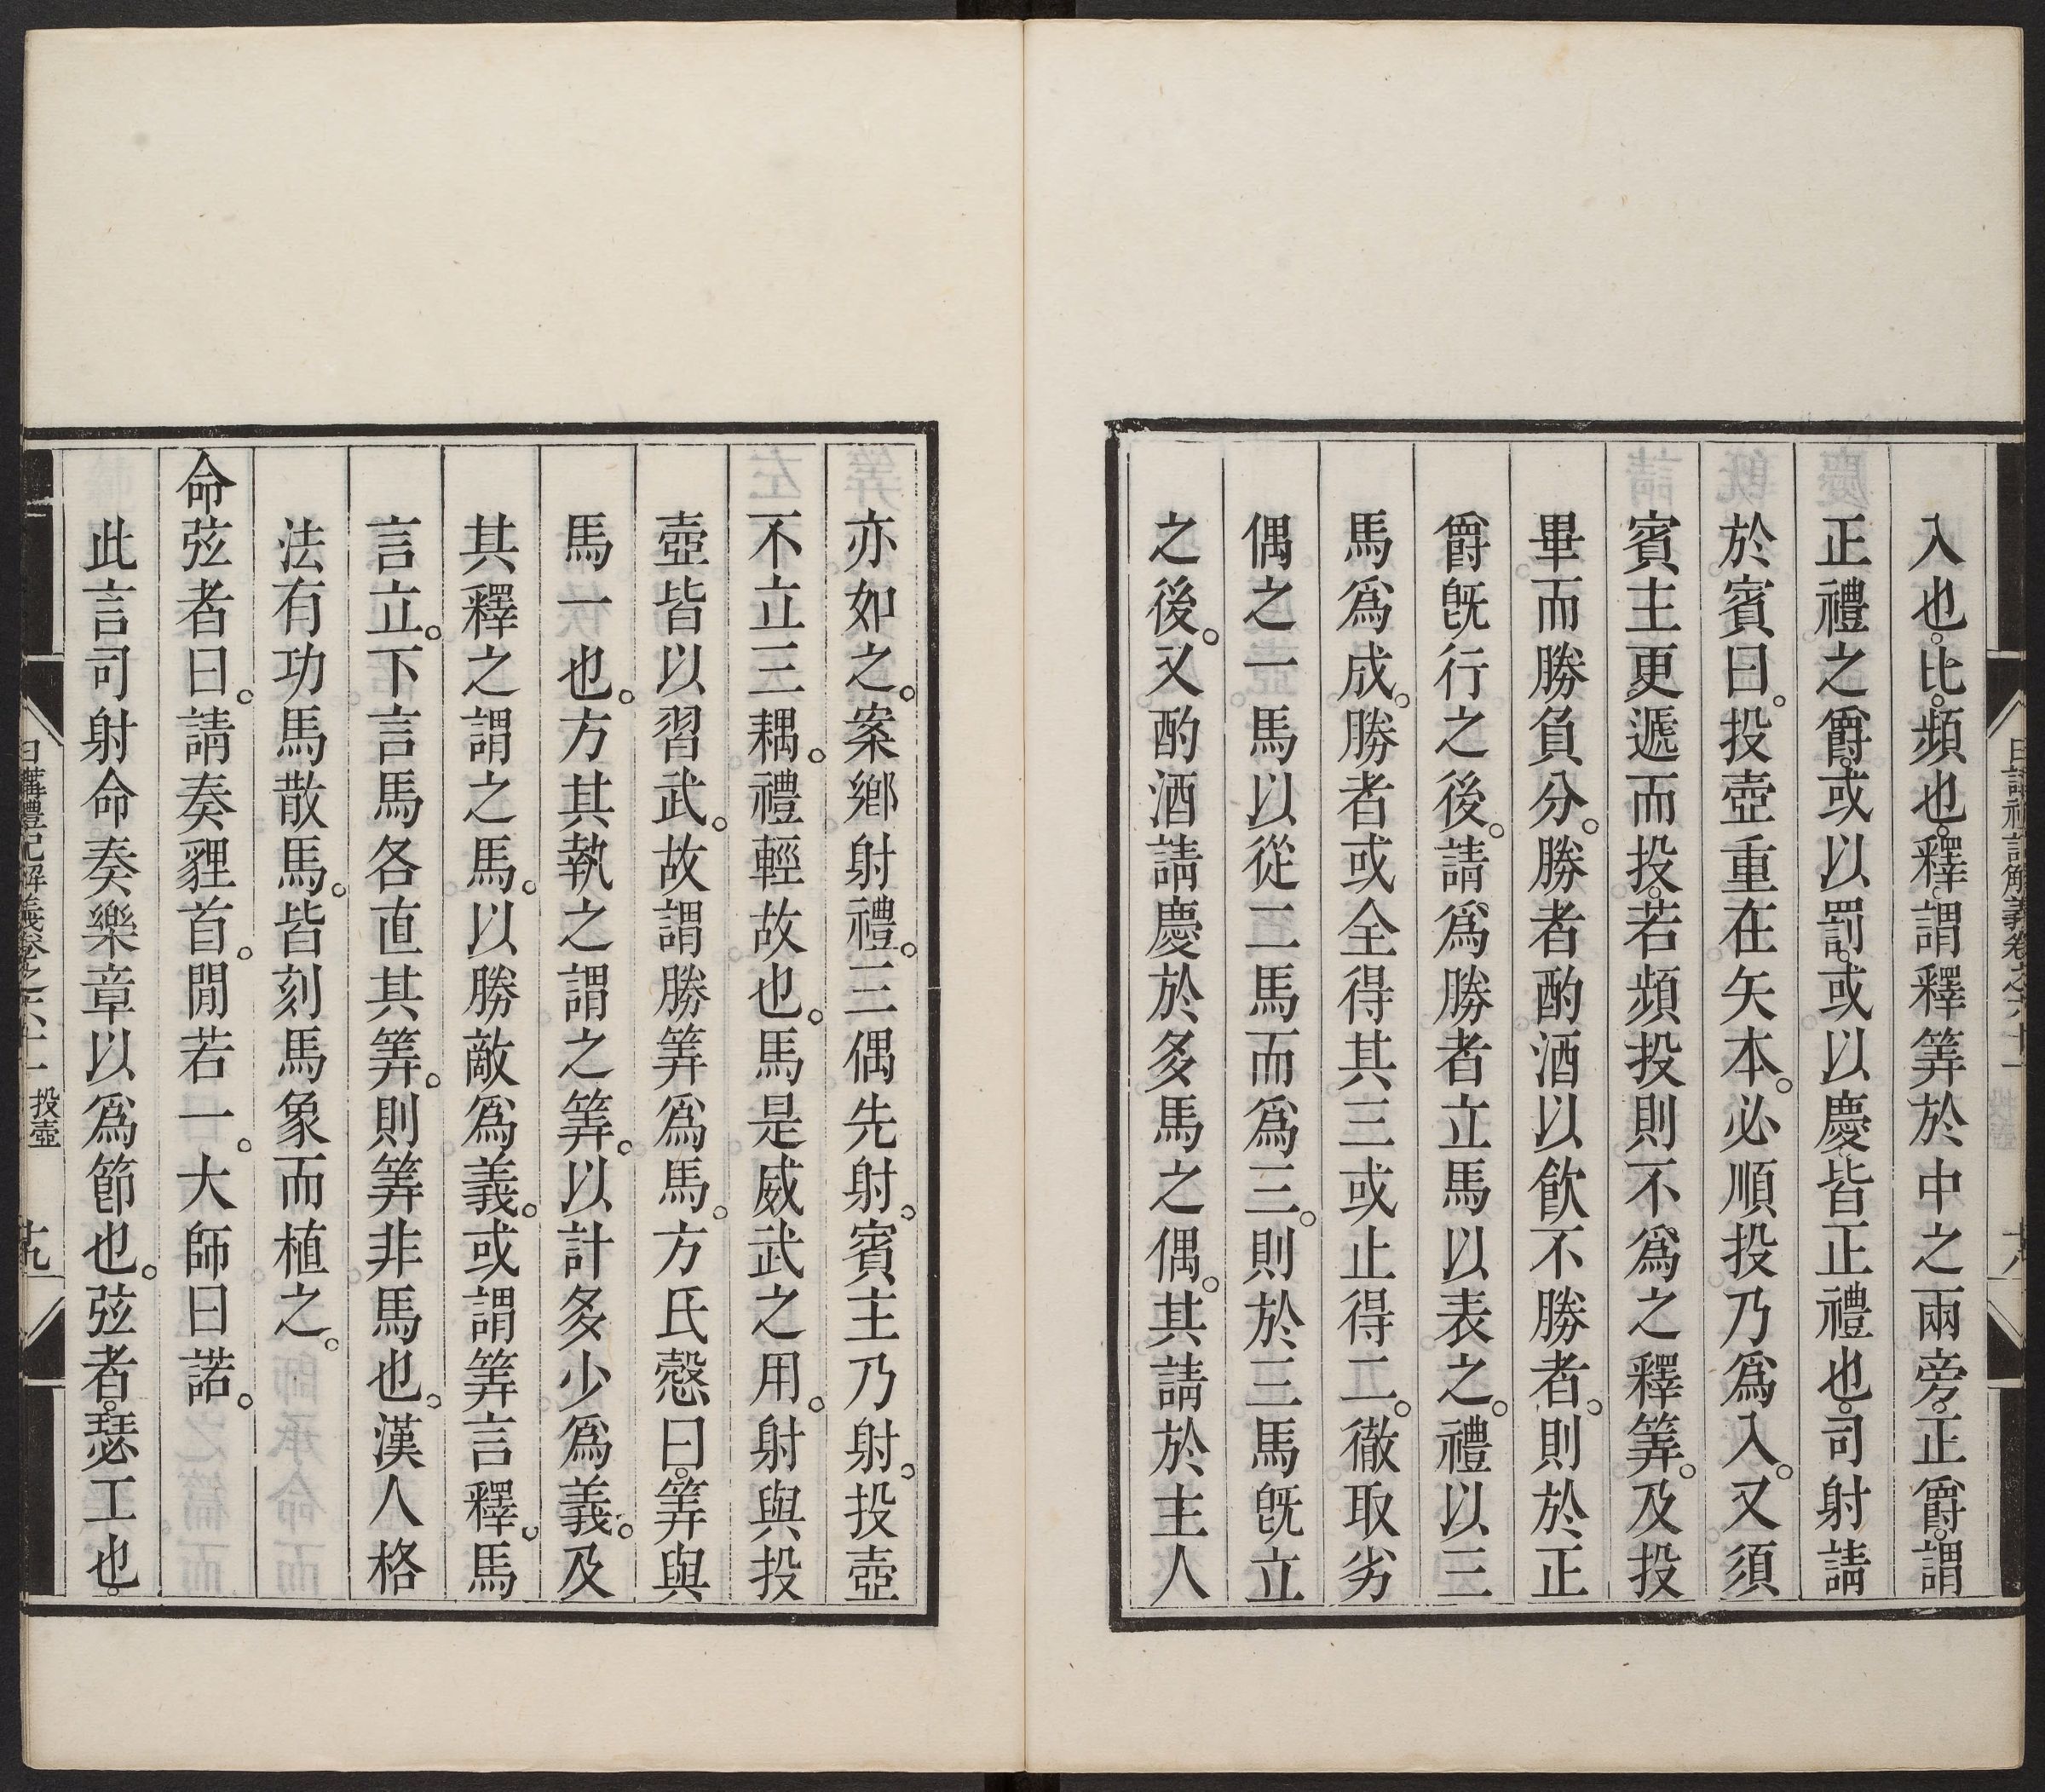 入也。比。頻也。釋。謂釋筭於中之兩旁。正爵。謂
正禮之爵。或以罰。或以慶。皆正禮也。司射請
於賓曰。投壺重在矢本。必順投乃爲入。又須
賓主更遞而投。若頻投則不爲之釋筭。及投
畢而勝負分。勝者酌酒以飲不勝者。則於正
爵旣行之後。請爲勝者立馬以表之。禮以三
馬爲成。勝者或全得其三或止得二。徹取劣
偶之一馬以從二馬而爲三。則於三馬旣立
之後。又酌酒請慶於多馬之偶。其請於主人
亦如之。案鄉射禮。三偶先射。賓主乃射。投壺
不立三耦。禮輕故也。馬是威武之用。射與投
壺皆以習武。故謂勝筭爲馬。方氏慤曰。筭與
馬一也。方其執之謂之筭。以計多少爲義。及
其釋之謂之馬。以勝敵爲義。或謂筭言釋。馬
言立。下言馬各直其筭。則筭非馬也。漢人格
法有功馬散馬。皆刻馬象而植之。
命弦者曰。請奏貍首。閒若一。大師曰諾。
此言司射命奏樂章以爲節也。弦者。瑟工也。
日講禮記解義卷之六十一 投壺 十九